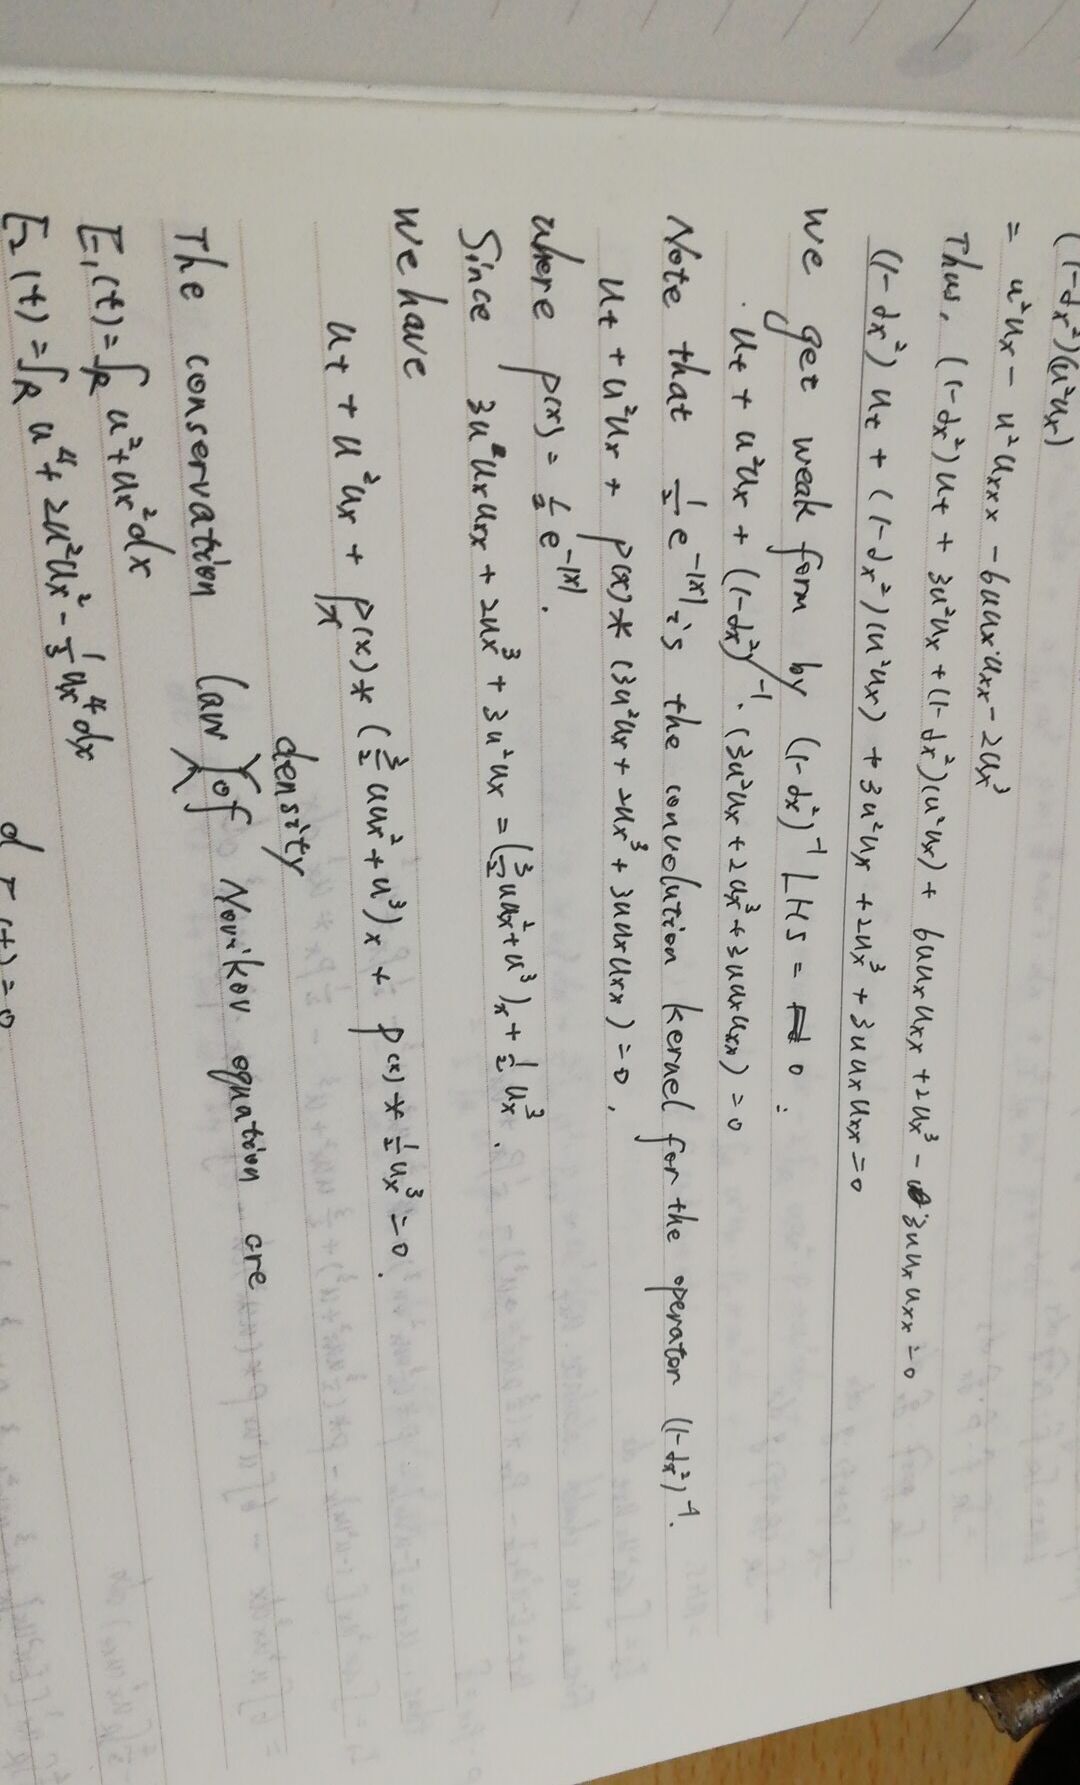 (1-∂x²)(u²ux)
= u²ux - u²uxxx - 6uux·uxx - 2ux³
Thus, (1-∂x²)ut + 3u²ux + (1-∂x²)(u²ux) + 6uuxuxx + 2ux³ - 3uuxuxx = 0
(1-∂x²)ut + (1-∂x²)(u²ux) + 3u²ux + 2ux³ + 3uuxuxx = 0
We get weak form by (1-∂x²)⁻¹ LHS = 0:
ut + u²ux + (1-∂x²)⁻¹·(3u²ux + 2ux³ + 3uuxuxx) = 0
Note that ½e^{-|x|} is the convolution kernel for the operator (1-∂x²)⁻¹.
ut + u²ux + p(x)*(3u²ux + 2ux³ + 3uuxuxx) = 0,
where p(x) = ½e^{-|x|}.
Since 3uuxuxx + 2ux³ + 3u²ux = (3/2 uux² + u³)x + ½ux³.
We have
ut + u²ux + p(x)*(3/2 uux² + u³)x + p(x)*½ux³ = 0.
density
The conservation law of Novikov equation are
E₁(t) = ∫R u² + ux² dx
E₂(t) = ∫R u⁴ + 2u²ux² - ⅓ux⁴ dx